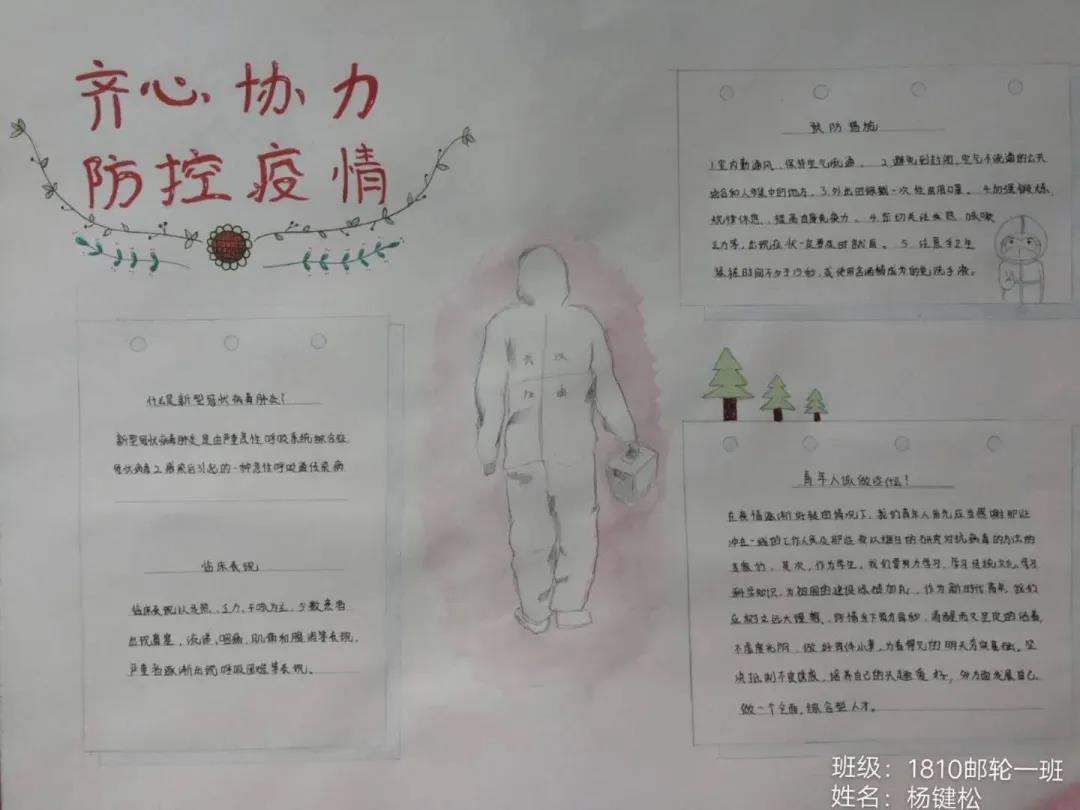 齐心协力
防控疫情
什么是新型冠状病毒肺炎?
新型冠状病毒肺炎是由严重急性呼吸系统综合症
冠状病毒2感染后引起的一种急性呼吸道传染病
临床表现
临床表现以发热、乏力、干咳为主,少数患者
出现鼻塞,流涕,咽痛,肌痛和腹泻等表现,
严重者逐渐出现呼吸困难等表现。
武汉
加油
预防措施
1.室内勤通风,保持空气流通。2.避免到封闭,空气不流通的公共
场合和人群中的地方。3.外出回佩戴一次性医用口罩。4.加强锻炼,
规律休息,提高自身免疫力。4.密切关注发热,咳嗽
乏力等,出现症状一定要及时就医。5.注意手卫生
揉搓时间不少于15秒,或使用含酒精成分的免洗手液。
青年人该做些什么?
在疫情逐渐好转的情况下,我们青年人首先应当感谢那些
冲在一线的工作人员及那些夜以继日的研究对抗病毒的方法的
。其次,作为学生,我们要努力学习,学习传统文化,学习
科学知识,为祖国的建设添砖加瓦,作为新时代青年,我们
应树立远大理想,清醒而又坚定的活着,
不虚度光阴,做好每件小事,为看得见的明天夯实基础。坚
决抵制不良诱惑,培养自己的兴趣爱好,多方面发展自己
做一个全面,综合型人才。
班级:1810邮轮一班
姓名:杨键松